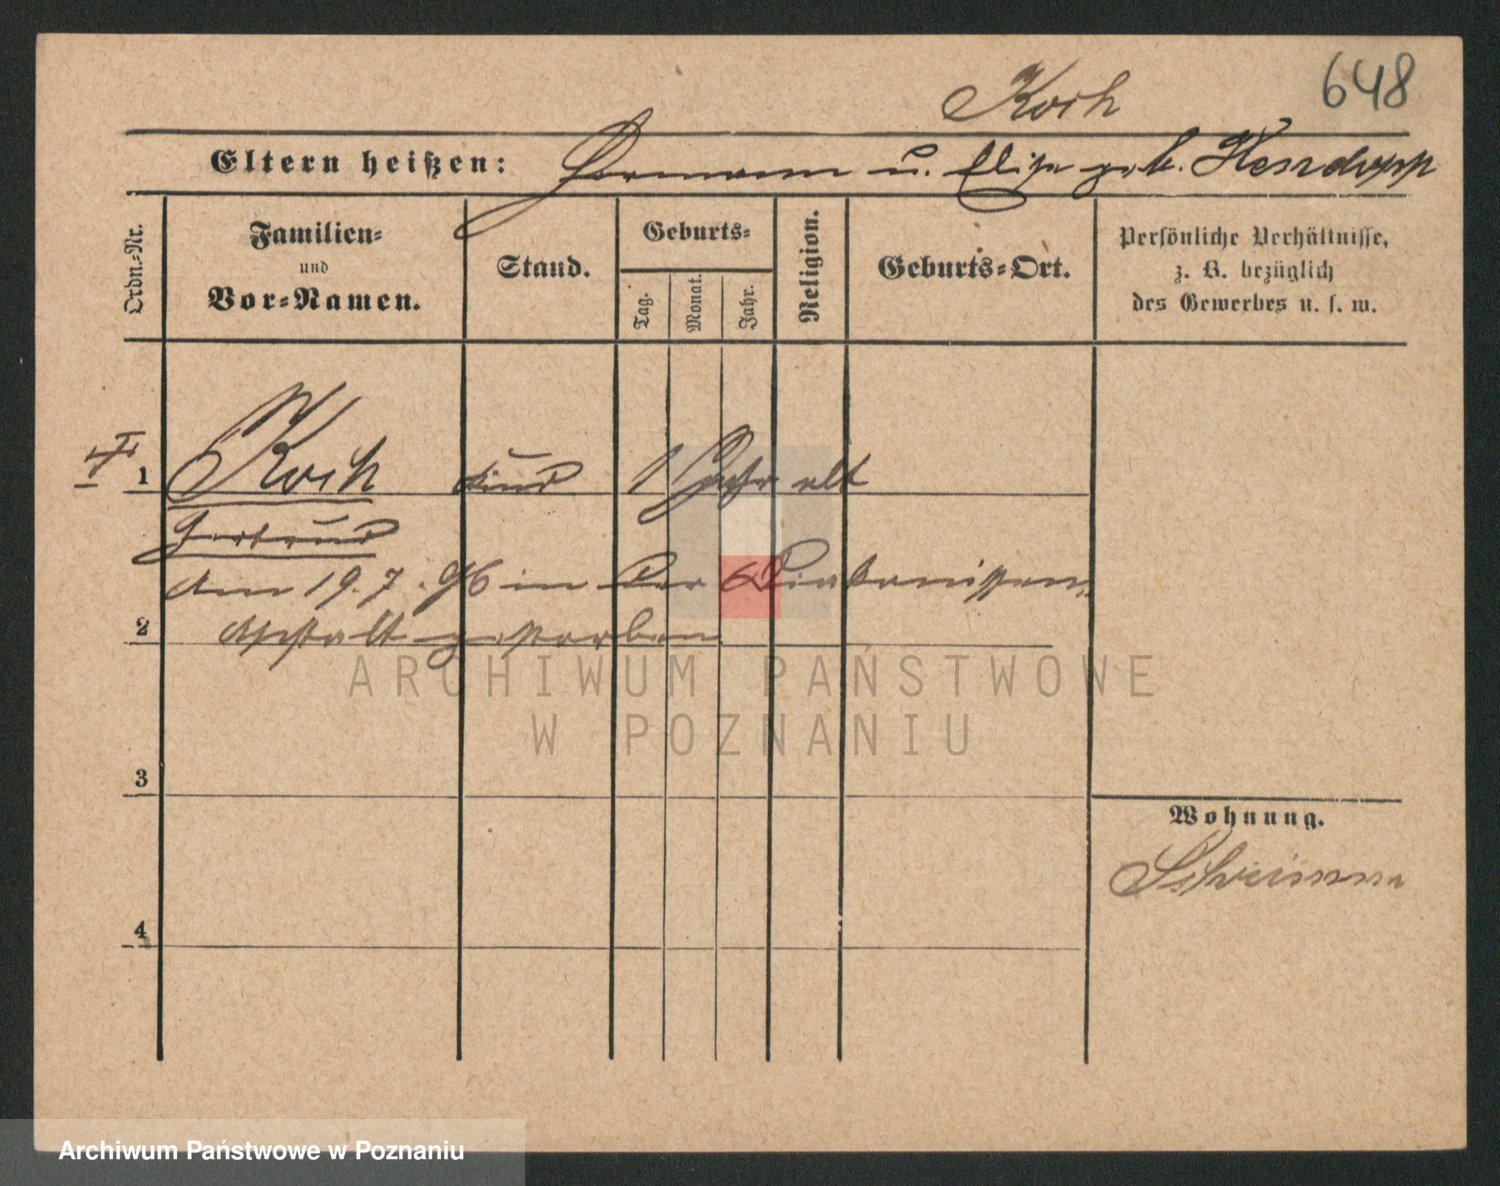 Koch 648
Eltern heißen: Hermann u. Elise geb.
Ordn.-Nr.
Familien-
und
Vor-Namen.
Stand.
Geburts-
Tag.
Monat.
Jahr.
Religion.
Geburts-Ort.
Persönliche Verhältnisse,
z. B. bezüglich
des Gewerbes u. s. w.
1 Koch Kind 1 Jahr alt
Gertrud
Am 19.7.96 in der Diakonissen
2 Anstalt gestorben
ARCHIWUM PAŃSTWOWE
W POZNANIU
3
Wohnung.
4
Archiwum Państwowe w Poznaniu